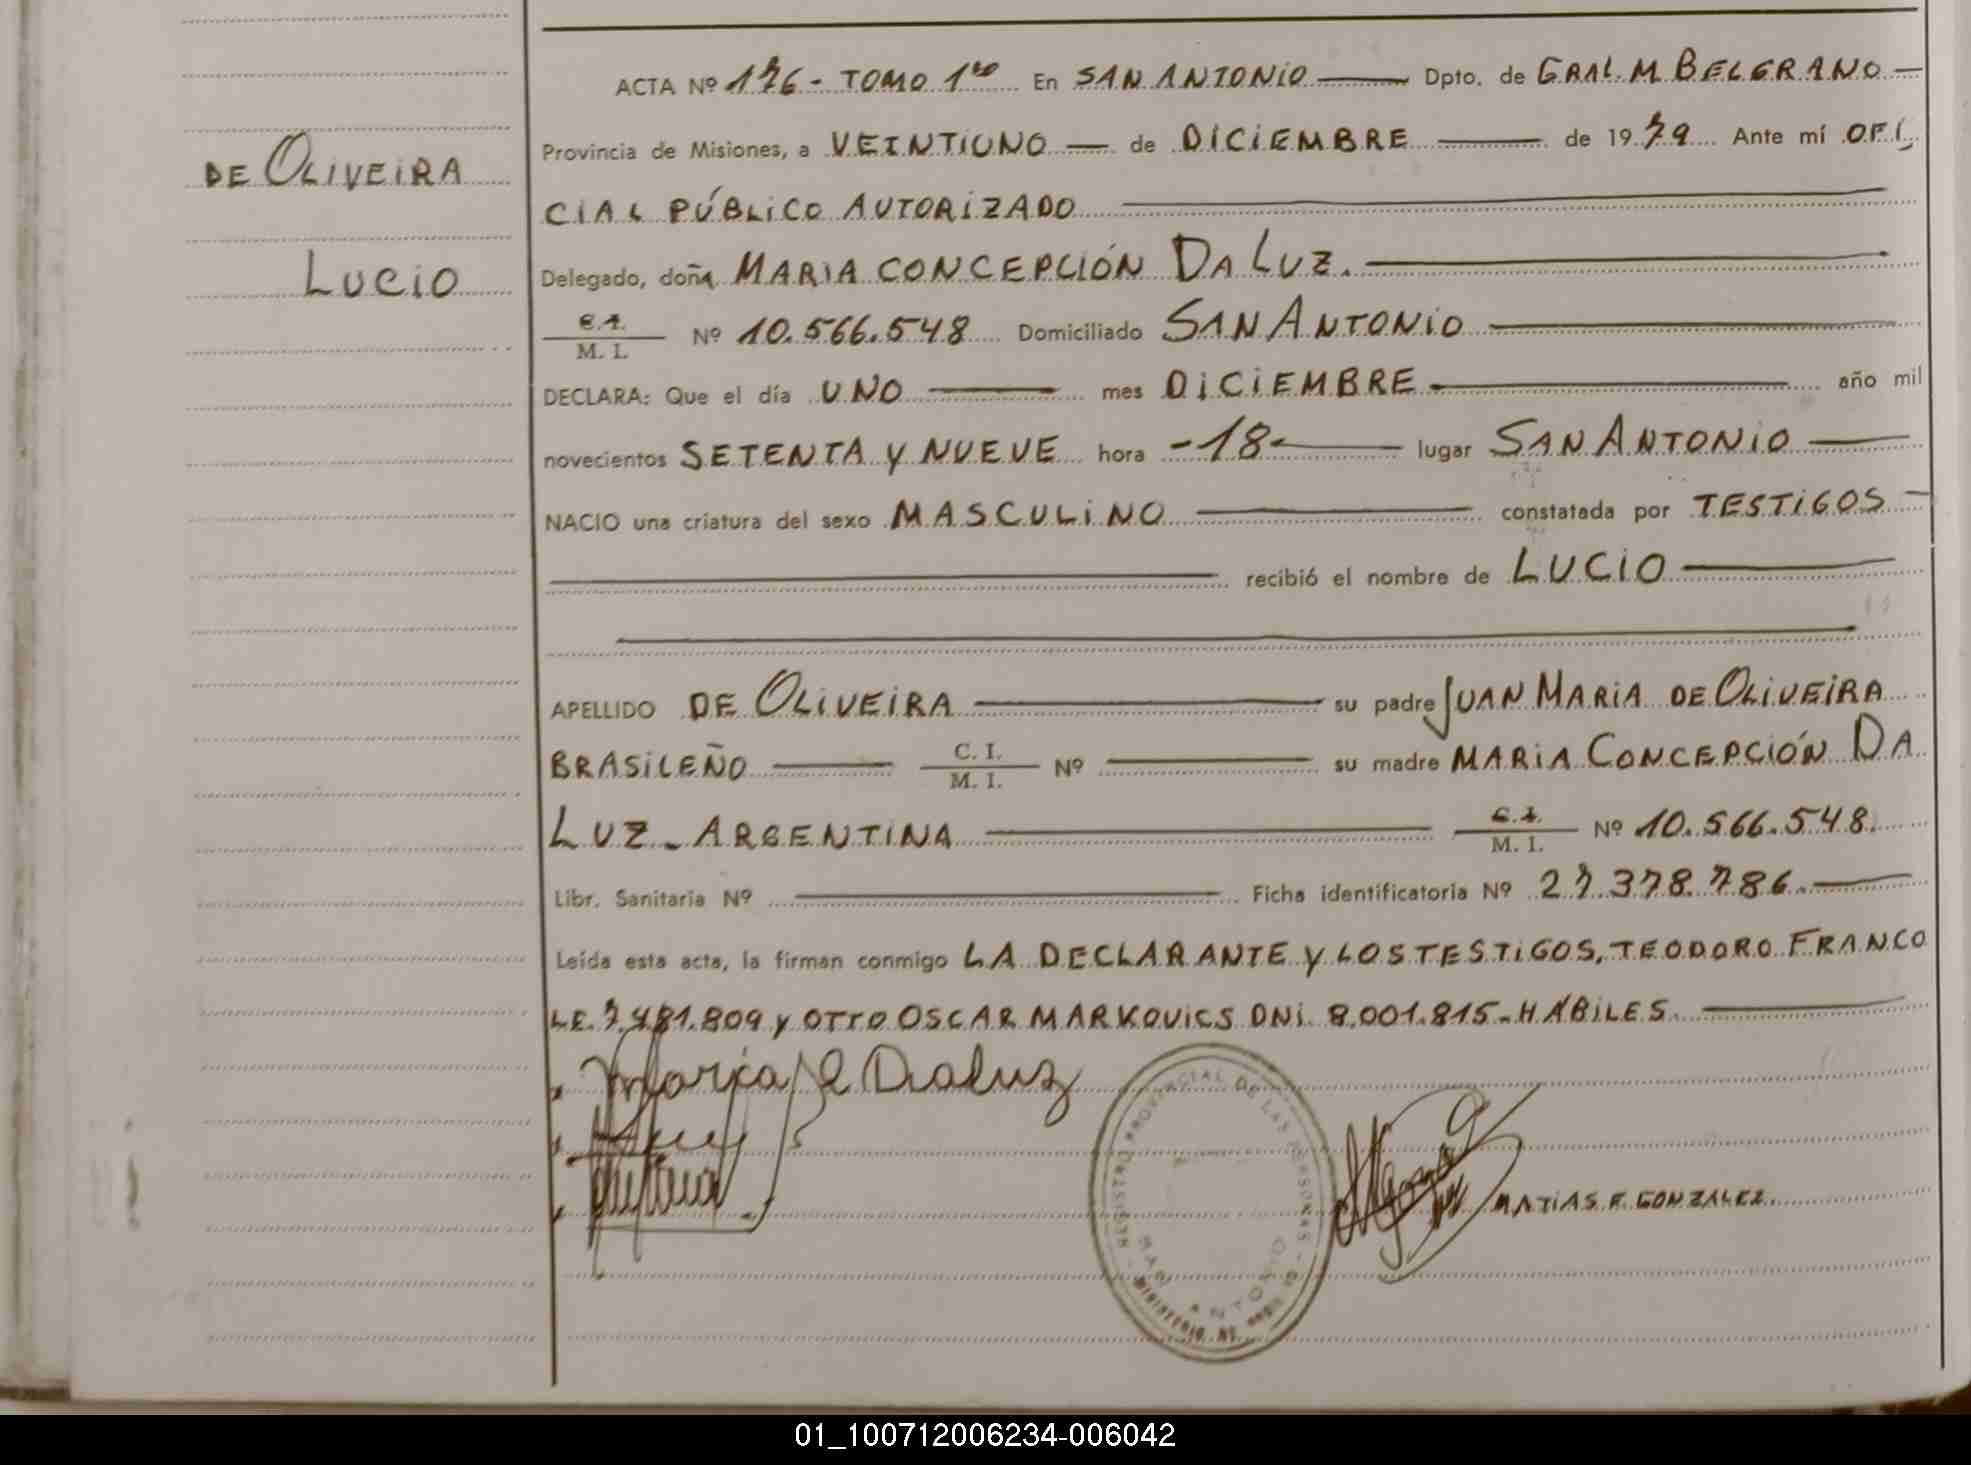 ACTA Nº 176 - TOMO 1ro En SAN ANTONIO Dpto. de GRAL. M. BELGRANO
Provincia de Misiones, a VEINTIUNO de DICIEMBRE de 1979 Ante mí OFI
DE OLIVEIRA
CIAL PÚBLICO AUTORIZADO
LUCIO
Delegado, doña MARIA CONCEPCIÓN DA LUZ.
C.I.
M. I. Nº 10.566.548 Domiciliado SAN ANTONIO
DECLARA: Que el día UNO mes DICIEMBRE año mil
novecientos SETENTA Y NUEVE hora -18- lugar SAN ANTONIO
NACIO una criatura del sexo MASCULINO constatada por TESTIGOS
recibió el nombre de LUCIO
APELLIDO DE OLIVEIRA su padre JUAN MARIA DE OLIVEIRA
BRASILEÑO C. I. M. I. Nº su madre MARIA CONCEPCIÓN DA
LUZ - ARGENTINA C.I. M. I. Nº 10.566.548.
Libr. Sanitaria Nº Ficha identificatoria Nº 27.378.786.
Leída esta acta, la firman conmigo LA DECLARANTE Y LOS TESTIGOS, TEODORO FRANCO
LE. 7.481.809 y OTTO OSCAR MARKOVICS DNI. 8.001.815 - HÁBILES.
Maria C Daluz
REGISTRO PROVINCIAL DE LAS PERSONAS
SAN ANTONIO
MINISTERIO DE
MATIAS F. GONZALEZ.
01_100712006234-006042